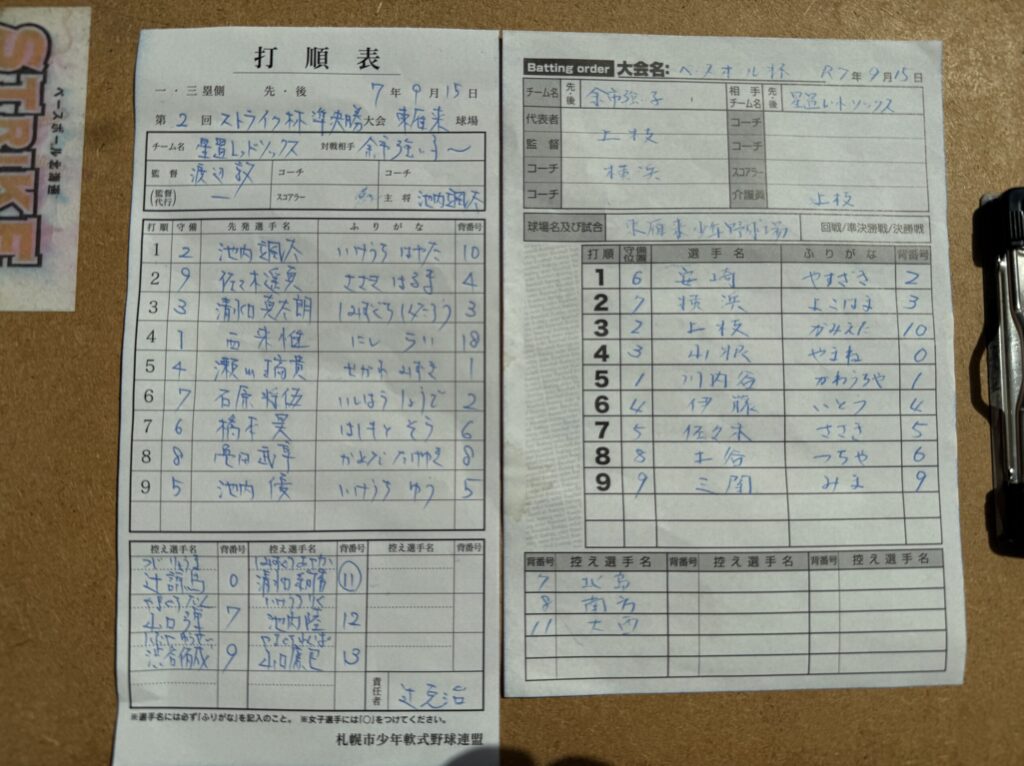 STRIKE
ベースボールお青運
打順表
一・三塁側 先・後 7年9月15日
第2回ストライク杯準決勝大会 東雁来球場
チーム名 星置レッドソックス 対戦相手
監督 渡辺敦 コーチ コーチ
(監督代行) ー スコアラー 主将 池内颯太
打順 守備 先発選手名 ふりがな 背番号
1 2 池内颯太 いけうち はやた 10
2 9 佐々木遥真 ささき はるま 4
3 3 清水口真太朗 3
4 1 西朱惟 にし 18
5 4 瀬川瑞貴 せがわ みずき 1
6 7 石原将伍 いしはら しょうご 2
7 6 橋本 はしもと そう 6
8 8 8
9 5 池内優 いけうち ゆう 5
控え選手名 背番号 控え選手名 背番号 控え選手名 背番号
0 ⑪
山口 7 いけうち 池内陸 12
渋谷 9 山口 13
責任者 辻
※選手名には必ず「ふりがな」を記入のこと。 ※女子選手には「○」をつけてください。
札幌市少年軟式野球連盟
Batting order 大会名: R7年9月15日
チーム名 先・後 相手チーム名 先・後 星置レットソックス
代表者 コーチ
監督 上枝 コーチ
コーチ 横浜 スコアラー
コーチ 介護員 上枝
球場名及び試合 東雁来少年野球場 回戦/準決勝戦/決勝戦
打順 守備位置 選手名 ふりがな 背番号
1 6 安崎 やすざき 2
2 7 横浜 よこはま 3
3 2 上枝 かみえだ 10
4 3 山根 やまね 0
5 1 川内谷 かわうちや 1
6 4 伊藤 いとう 4
7 5 佐々木 ささき 5
8 8 土谷 つちや 6
9 9 三間 みま 9
背番号 控え選手名 背番号 控え選手名 背番号 控え選手名
7 北島
8 南
11 大西